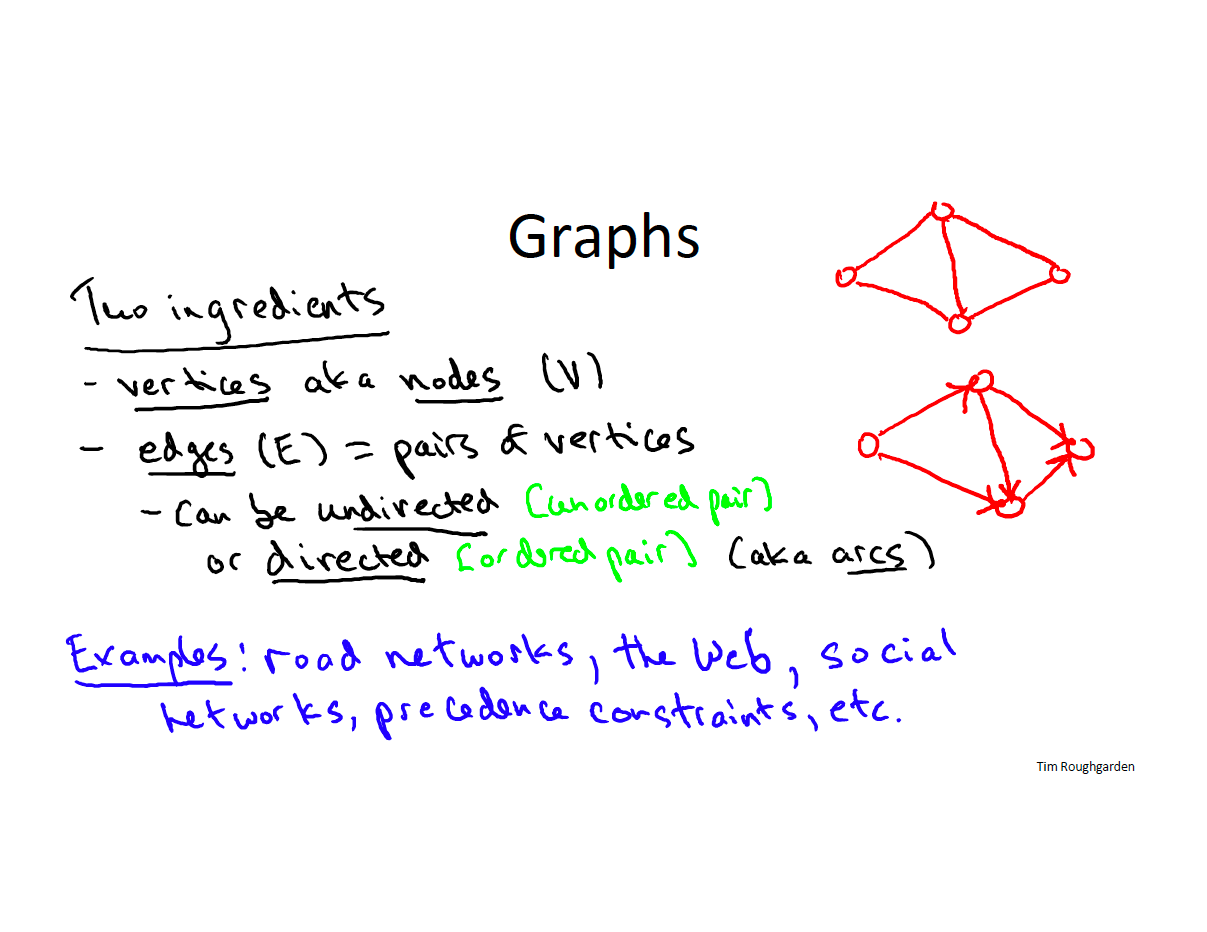 Graphs
Two ingredients
- vertices aka nodes (V)
- edges (E) = pairs of vertices
- can be undirected [unordered pair]
or directed [ordered pair] (aka arcs)
Examples: road networks, the Web, social
networks, precedence constraints, etc.
Tim Roughgarden